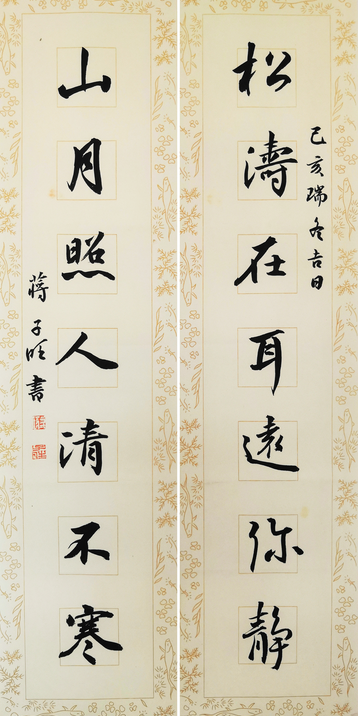 己亥瑞冬吉日
松濤在耳遠弥静
山月照人清不寒
蔣子旺書